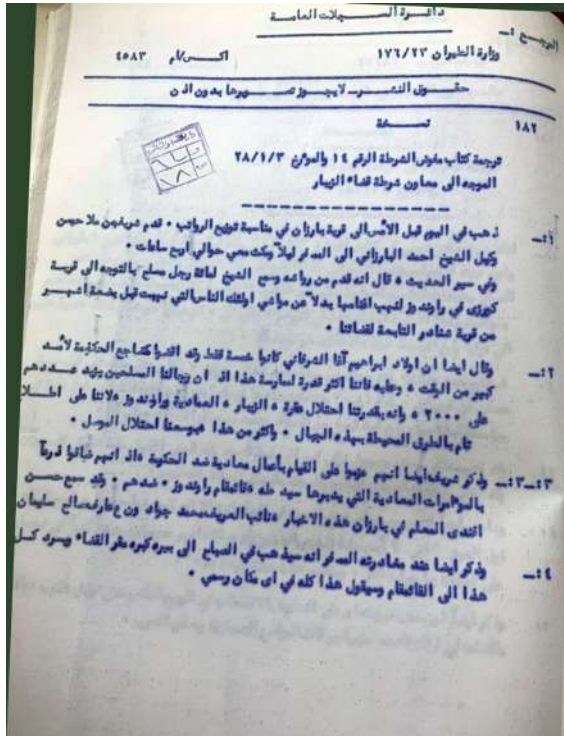 دائرة السجلات العامة
المرجع :ـ
وزارة الطيران ١٧٦/٢٣ اكس/م ٤٥٨٣
حقوق النشر ـ لايجوز تصويرها بدون اذن
١٨٢ نسخة
ترجمة كتاب مفوض الشرطة الرقم ١٤ والمؤرخ ٢٨/١/٣
الموجه الى معاون شرطة قضاء الزيبار
١:ـ ذهب في اليوم قبل الأمس الى قرية بارزان في مناسبة توزيع الرواتب ٠ قدم شريف بن ملا حسن
وكيل الشيخ احمد البارزاني الى المخفر ليلاً ومكث معي حوالي اربع ساعات ٠
وفي سير الحديث ٠ قال انه قدم من رواندوز وسمح الشيخ لمائة رجل مسلح بالتوجه الى قرية
في راوندوز لنهب اغنامها بدلاً من مواشي اولئك الناس التي نهبت قبل بضعة اشهر
من قرية التابعة لقضائنا ٠
٢:ـ وقال ايضا ان اولاد ابراهيم آغا كانوا خمسة فقط وقد اقضوا مضاجع الحكومة لأمد
كبير من الوقت ٠ وعليه فاننا اكثر قدرة لممارسة هذا اذ ان رجالنا المسلحين يزيد عددهم
على ٢٠٠٠ ٠ وانه بقدرتنا احتلال عقرة ٠ الزيبار ٠ العمادية وراوندوز ٠ لاننا على اطلاع
تام بالطرق المحيطة بهذه الجبال ٠ واكثر من هذا بوسعنا احتلال الموصل ٠
٣:ـ٣:ـ وذكر شريف ايضا انهم عزموا على القيام بأعمال معادية ضد الحكومة ٠ اذ انهم ضاقوا ذرعاً
بالمؤامرات المعادية التي يدبرها سيد طه قائمقام راوندوز ٠ ضدهم ٠ وقد سمع حسن
افندي المعلم في بارزان هذه الاخبار ٠ نائب العريف محمد جواد ون ع عارف صالح سليمان
٤:ـ وذكر ايضا عند مغادرته المخفر انه سيذهب في الصباح الى بيره كبره مقر القضاء ويسرد كل
هذا الى القائمقام وسيقول هذا كله في اى مكان رسمي ٠